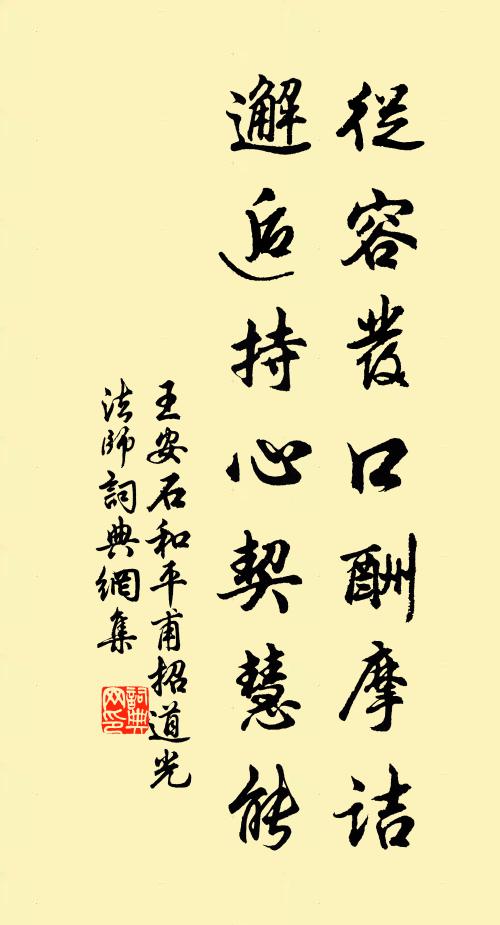 從容發口酬摩詰
邂逅持心契慧能
王安石和平甫招道光
法師詞典網集
詞典
网印